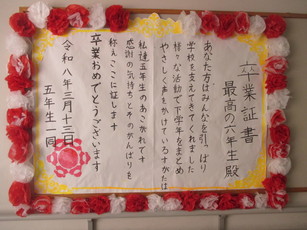 卒業証書
最高の六年生殿
あなた方はみんなを引っぱり
学校を支えてきてくれました
様々な活動で下学年をまとめ
やさしく声をかけているすがたは
私達五年生のあこがれです
感謝の気持ちとそのがんばりを
称えここに証します
卒業おめでとうございます
令和八年三月十三日
五年生一同